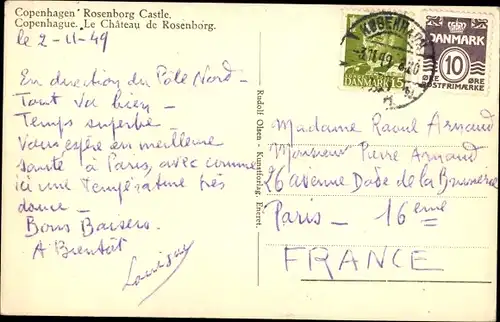 Copenhagen Rosenborg Castle.
Copenhague. Le Château de Rosenborg.
le 2-11-49
En direction du Pôle Nord -
Tout va bien -
Temps superbe
Vous espère en meilleure
santé à Paris, avec comme
ici une température très
douce -
Bons Baisers.
A Bientôt
Rudolf Olsen - Kunstforlag. Eneret.
KØBENHAVN
DANMARK 15
DANMARK
10
ØRE ØRE
POSTFRIMÆRKE
Madame Raoul Arnaud
Monsieur Pierre Arnaud
26 avenue Dode de la Brunerie
Paris - 16eme
FRANCE